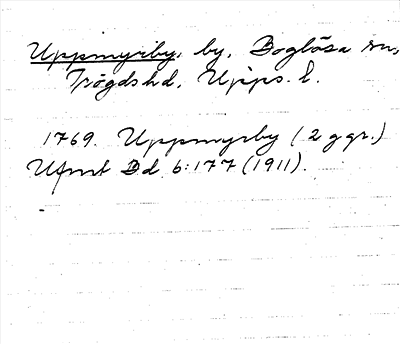 Uppmyrby, by, Boglösa sn,
Trögds hd, Upps. l.
1769. Uppmyrby (2 ggr.)
Ufmt Bd 6:177 (1911).